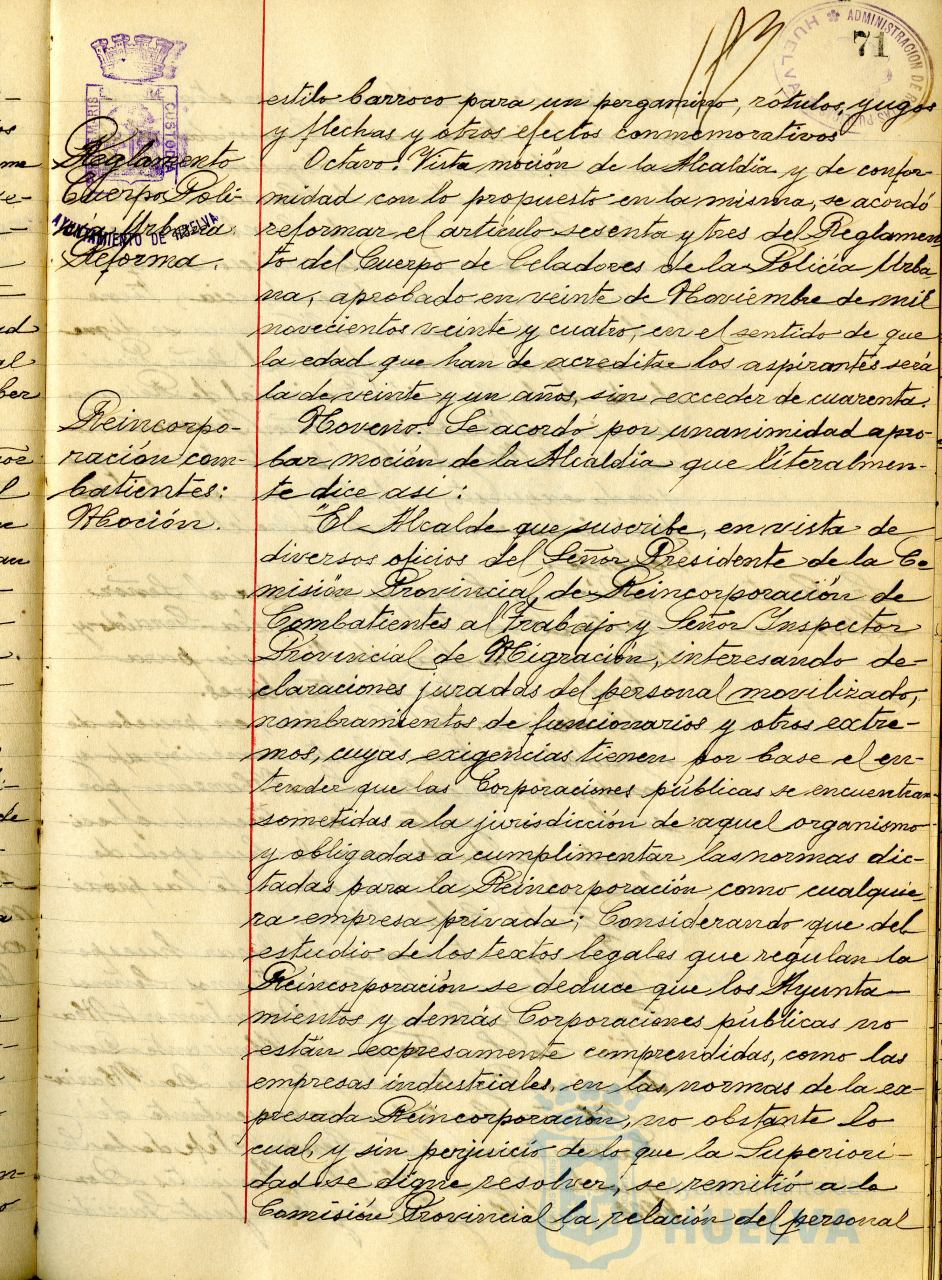 183
71
ADMINISTRACION DE
HUELVA
AYUNTAMIENTO DE HUELVA
Reglamento
Cuerpo Poli-
cía Urbana.
Reforma.
estilo barroco para un pergamino, rótulos, yugos
y flechas y otros efectos conmemorativos
Octavo. Vista moción de la Alcaldía y de confor-
midad con lo propuesto en la misma, se acordó
reformar el artículo sesenta y tres del Reglamen-
to del Cuerpo de Celadores de la Policía Urba
na, aprobado en veinte de Noviembre de mil
novecientos veinte y cuatro, en el sentido de que
la edad que han de acreditar los aspirantes será
la de veinte y un años, sin exceder de cuarenta.
Reincorpo-
ración com-
batientes:
Moción.
Noveno. Se acordó por unanimidad apro-
bar moción de la Alcaldía que literalmen-
te dice así:
"El Alcalde que suscribe, en vista de
diversos oficios del Señor Presidente de la Co-
misión Provincial de Reincorporación de
Combatientes al Trabajo y Señor Inspector
Provincial de Migración, interesando de-
claraciones juradas del personal movilizado,
nombramientos de funcionarios y otros extre-
mos, cuyas exigencias tienen por base el en-
tender que las Corporaciones públicas se encuentran
sometidas a la jurisdicción de aquel organismo
y obligadas a cumplimentar las normas dic-
tadas para la Reincorporación como cualquie-
ra empresa privada; Considerando que del
estudio de los textos legales que regulan la
Reincorporación se deduce que los Ayunta-
mientos y demás Corporaciones públicas no
están expresamente comprendidas, como las
empresas industriales, en las normas de la ex-
presada Reincorporación, no obstante lo
cual, y sin perjuicio de lo que la Superiori-
dad se digne resolver, se remitió a la
Comisión Provincial la relación del personal
HUELVA